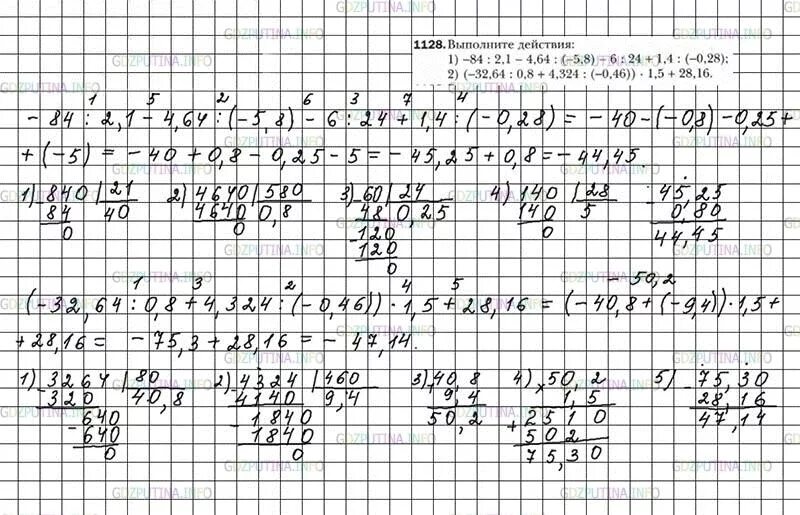 GDZPUTINA.INFO
1128. Выполните действия:
1) –84 : 2,1 – 4,64 : (–5,8) – 6 : 24 + 1,4 : (–0,28);
2) (–32,64 : 0,8 + 4,324 : (–0,46)) · 1,5 + 28,16.
1 5 2 6 3 7 4
– 84 : 2,1 – 4,64 : (–5,8) – 6 : 24 + 1,4 : (–0,28) = – 40 – (–0,8) – 0,25 +
+ (–5) = – 40 + 0,8 – 0,25 – 5 = – 45,25 + 0,8 = – 44,45.
1) 840 | 21 2) 4640 | 580 3) 60 | 24 4) 140 | 28 – 45,25
84 40 4640 0,8 48 0,25 140 5 0,80
0 0 – 120 0 44,45
120
0
1 3 2 4 5 – 50,2
(–32,64 : 0,8 + 4,324 : (–0,46)) · 1,5 + 28,16 = (–40,8 + (–9,4)) · 1,5 +
+ 28,16 = – 75,3 + 28,16 = – 47,14.
1) – 3264 | 80 2) – 4324 | 460 3) 40,8 4) × 50,2 5) – 75,30
320 40,8 4140 9,4 9,4 1,5 28,16
– 640 – 1840 50,2 + 2510 47,14
640 1840 502
0 0 75,30